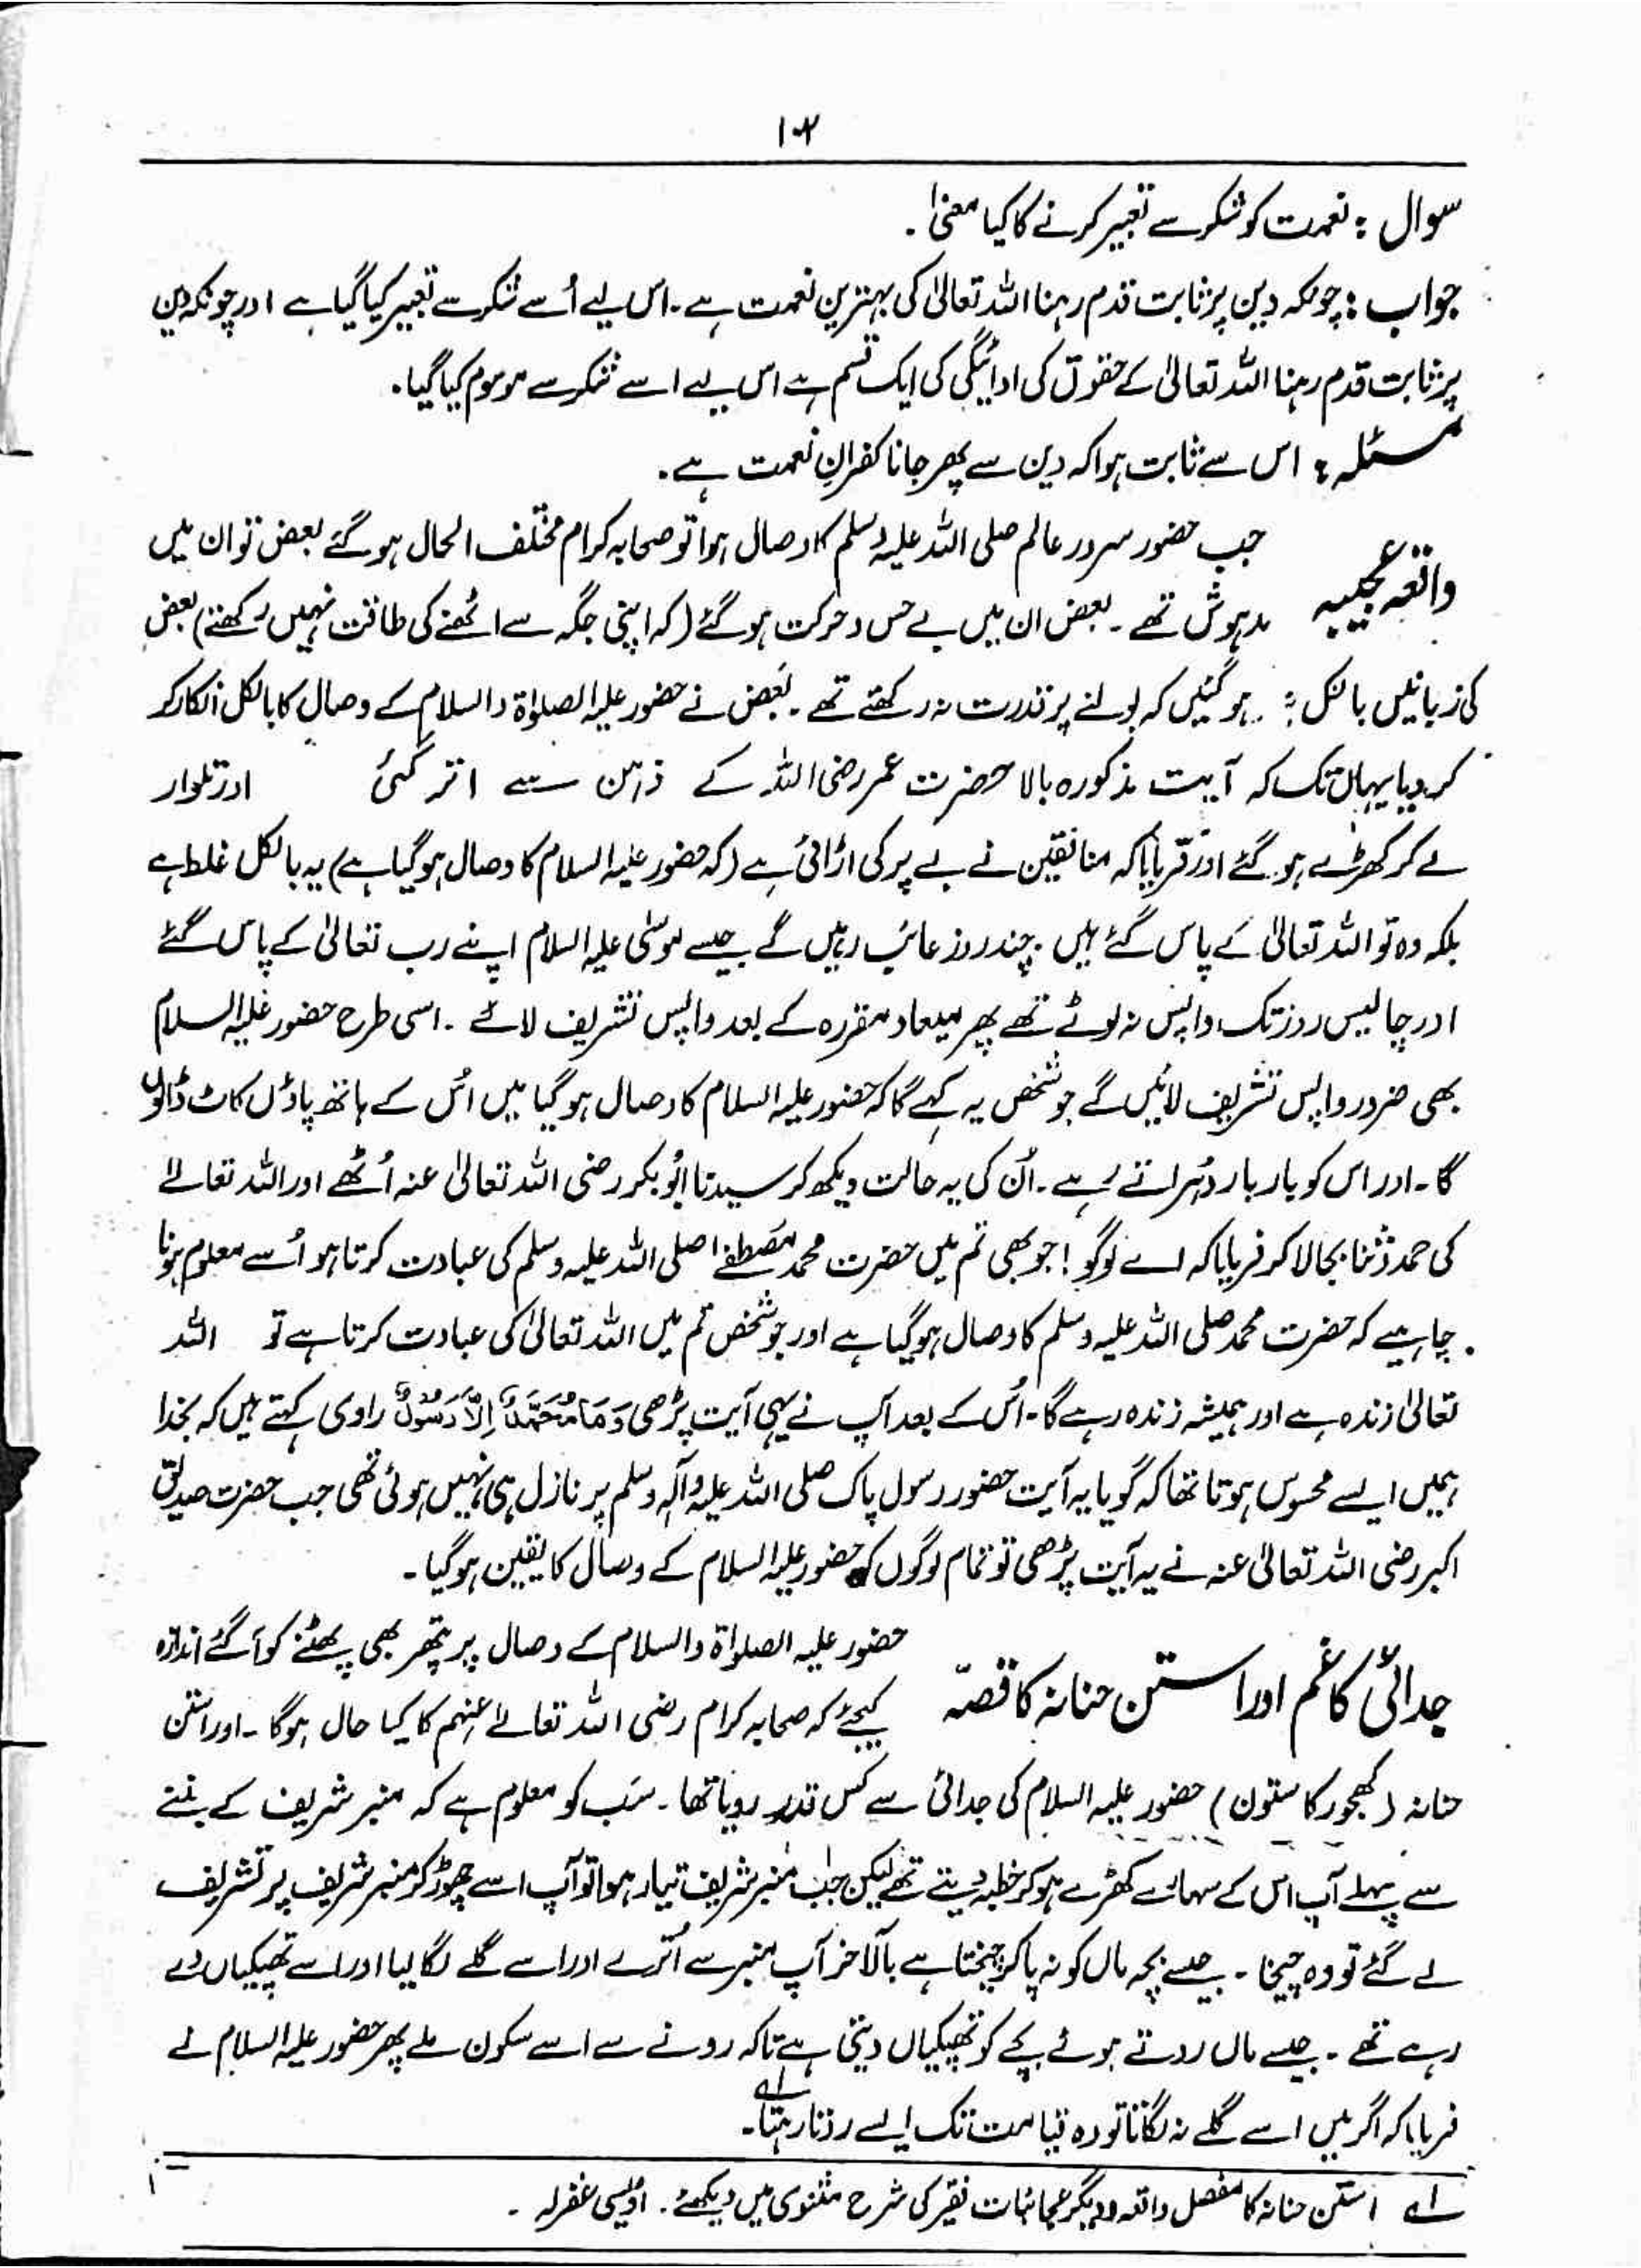 ۱۰۲
سوال : نعمت کو شکر سے تعبیر کرنے کا کیا معنیٰ ۔
جواب : چونکہ دین پر ثابت قدم رہنا اللہ تعالیٰ کی بہترین نعمت ہے ۔ اس لیے اُسے شکر سے تعبیر کیا گیا ہے اور چونکہ دین
پر ثابت قدم رہنا اللہ تعالیٰ کے حقوق کی ادائیگی کی ایک قسم ہے اس لیے اسے شکر سے موسوم کیا گیا ۔
مسئلہ : اس سے ثابت ہوا کہ دین سے پھر جانا کفرانِ نعمت ہے ۔
واقعہ عجیبہ
جب حضور سرور عالم صلی اللہ علیہ وسلم کا وصال ہوا تو صحابہ کرام مختلف الحال ہو گئے بعض تو ان میں
مدہوش تھے ۔ بعض ان میں بے حس و حرکت ہو گئے (کہ اپنی جگہ سے اٹھنے کی طاقت نہیں رکھتے) بعض
کی زبانیں بالکل ہو گئیں کہ بولنے پر قدرت نہ رکھتے تھے ۔ بعض نے حضور علیہ الصلوٰۃ والسلام کے وصال کا بالکل انکار کر
کر دیا یہاں تک کہ آیت مذکورہ بالا حضرت عمر رضی اللہ کے ذہن سے اتر گئی اور تلوار
لے کر کھڑے ہو گئے اور فرمایا کہ منافقین نے بے پر کی اڑائی ہے (کہ حضور علیہ السلام کا وصال ہو گیا ہے) یہ بالکل غلط ہے
بلکہ وہ تو اللہ تعالیٰ کے پاس گئے ہیں ۔ چند روز غائب رہیں گے جیسے موسیٰ علیہ السلام اپنے رب تعالیٰ کے پاس گئے
اور چالیس روز تک واپس نہ لوٹے تھے پھر میعاد مقررہ کے بعد واپس تشریف لائے ۔ اسی طرح حضور علیہ السلام
بھی ضرور واپس تشریف لائیں گے جو شخص یہ کہے گا کہ حضور علیہ السلام کا وصال ہو گیا میں اُس کے ہاتھ پاؤں کاٹ ڈالوں
گا ۔ اور اس کو بار بار دُہراتے رہے ۔ اُن کی یہ حالت دیکھ کر سیدنا ابُو بکر رضی اللہ تعالیٰ عنہ اُٹھے اور اللہ تعالےٰ
کی حمد و ثنا بجا لا کر فرمایا کہ اے لوگو ! جو بھی تم میں حضرت محمد مصطفےٰ صلی اللہ علیہ وسلم کی عبادت کرتا ہو اُسے معلوم ہونا
چاہیے کہ حضرت محمد صلی اللہ علیہ وسلم کا وصال ہو گیا ہے اور جو شخص تم میں اللہ تعالیٰ کی عبادت کرتا ہے تو اللہ
تعالیٰ زندہ ہے اور ہمیشہ زندہ رہے گا ۔ اُس کے بعد آپ نے یہی آیت پڑھی وَمَا مُحَمَّدٌ اِلَّا رَسُوْلٌ راوی کہتے ہیں کہ بخدا
ہمیں ایسے محسوس ہوتا تھا کہ گویا یہ آیت حضور رسول پاک صلی اللہ علیہ وآلہ وسلم پر نازل ہی نہیں ہوئی تھی جب حضرت صدیق
اکبر رضی اللہ تعالیٰ عنہ نے یہ آیت پڑھی تو تمام لوگوں کو حضور علیہ السلام کے وصال کا یقین ہو گیا ۔
جدائی کا غم اور استن حنانہ کا قصّہ
حضور علیہ الصلوٰۃ والسلام کے وصال پر پتھر بھی پھٹنے کو آ گئے اندازہ
کیجئے کہ صحابہ کرام رضی اللہ تعالےٰ عنہم کا کیا حال ہوگا ۔ اور استن
حنانہ (کھجور کا ستون) حضور علیہ السلام کی جدائی سے کس قدر رویا تھا ۔ سب کو معلوم ہے کہ منبر شریف کے بننے
سے پہلے آپ اس کے سہارے کھڑے ہو کر خطبہ دیتے تھے لیکن جب منبر شریف تیار ہوا تو آپ اسے چھوڑ کر منبر شریف پر تشریف
لے گئے تو وہ چیخا ۔ جیسے بچہ ماں کو نہ پا کر چیختا ہے بالآخر آپ منبر سے اُترے اور اسے گلے لگا لیا اور اسے تھپکیاں دے
رہے تھے ۔ جیسے ماں روتے ہوئے بچے کو تھپکیاں دیتی ہے تاکہ رونے سے اسے سکون ملے پھر حضور علیہ السلام نے
فرمایا کہ اگر میں اسے گلے نہ لگاتا تو وہ قیامت تک ایسے روتا رہتا ۔ لے
لے استن حنانہ کا مفصل واقعہ و دیگر عجائبات فقیر کی شرح مثنوی میں دیکھئے ۔ اویسی غفرلہ ۔